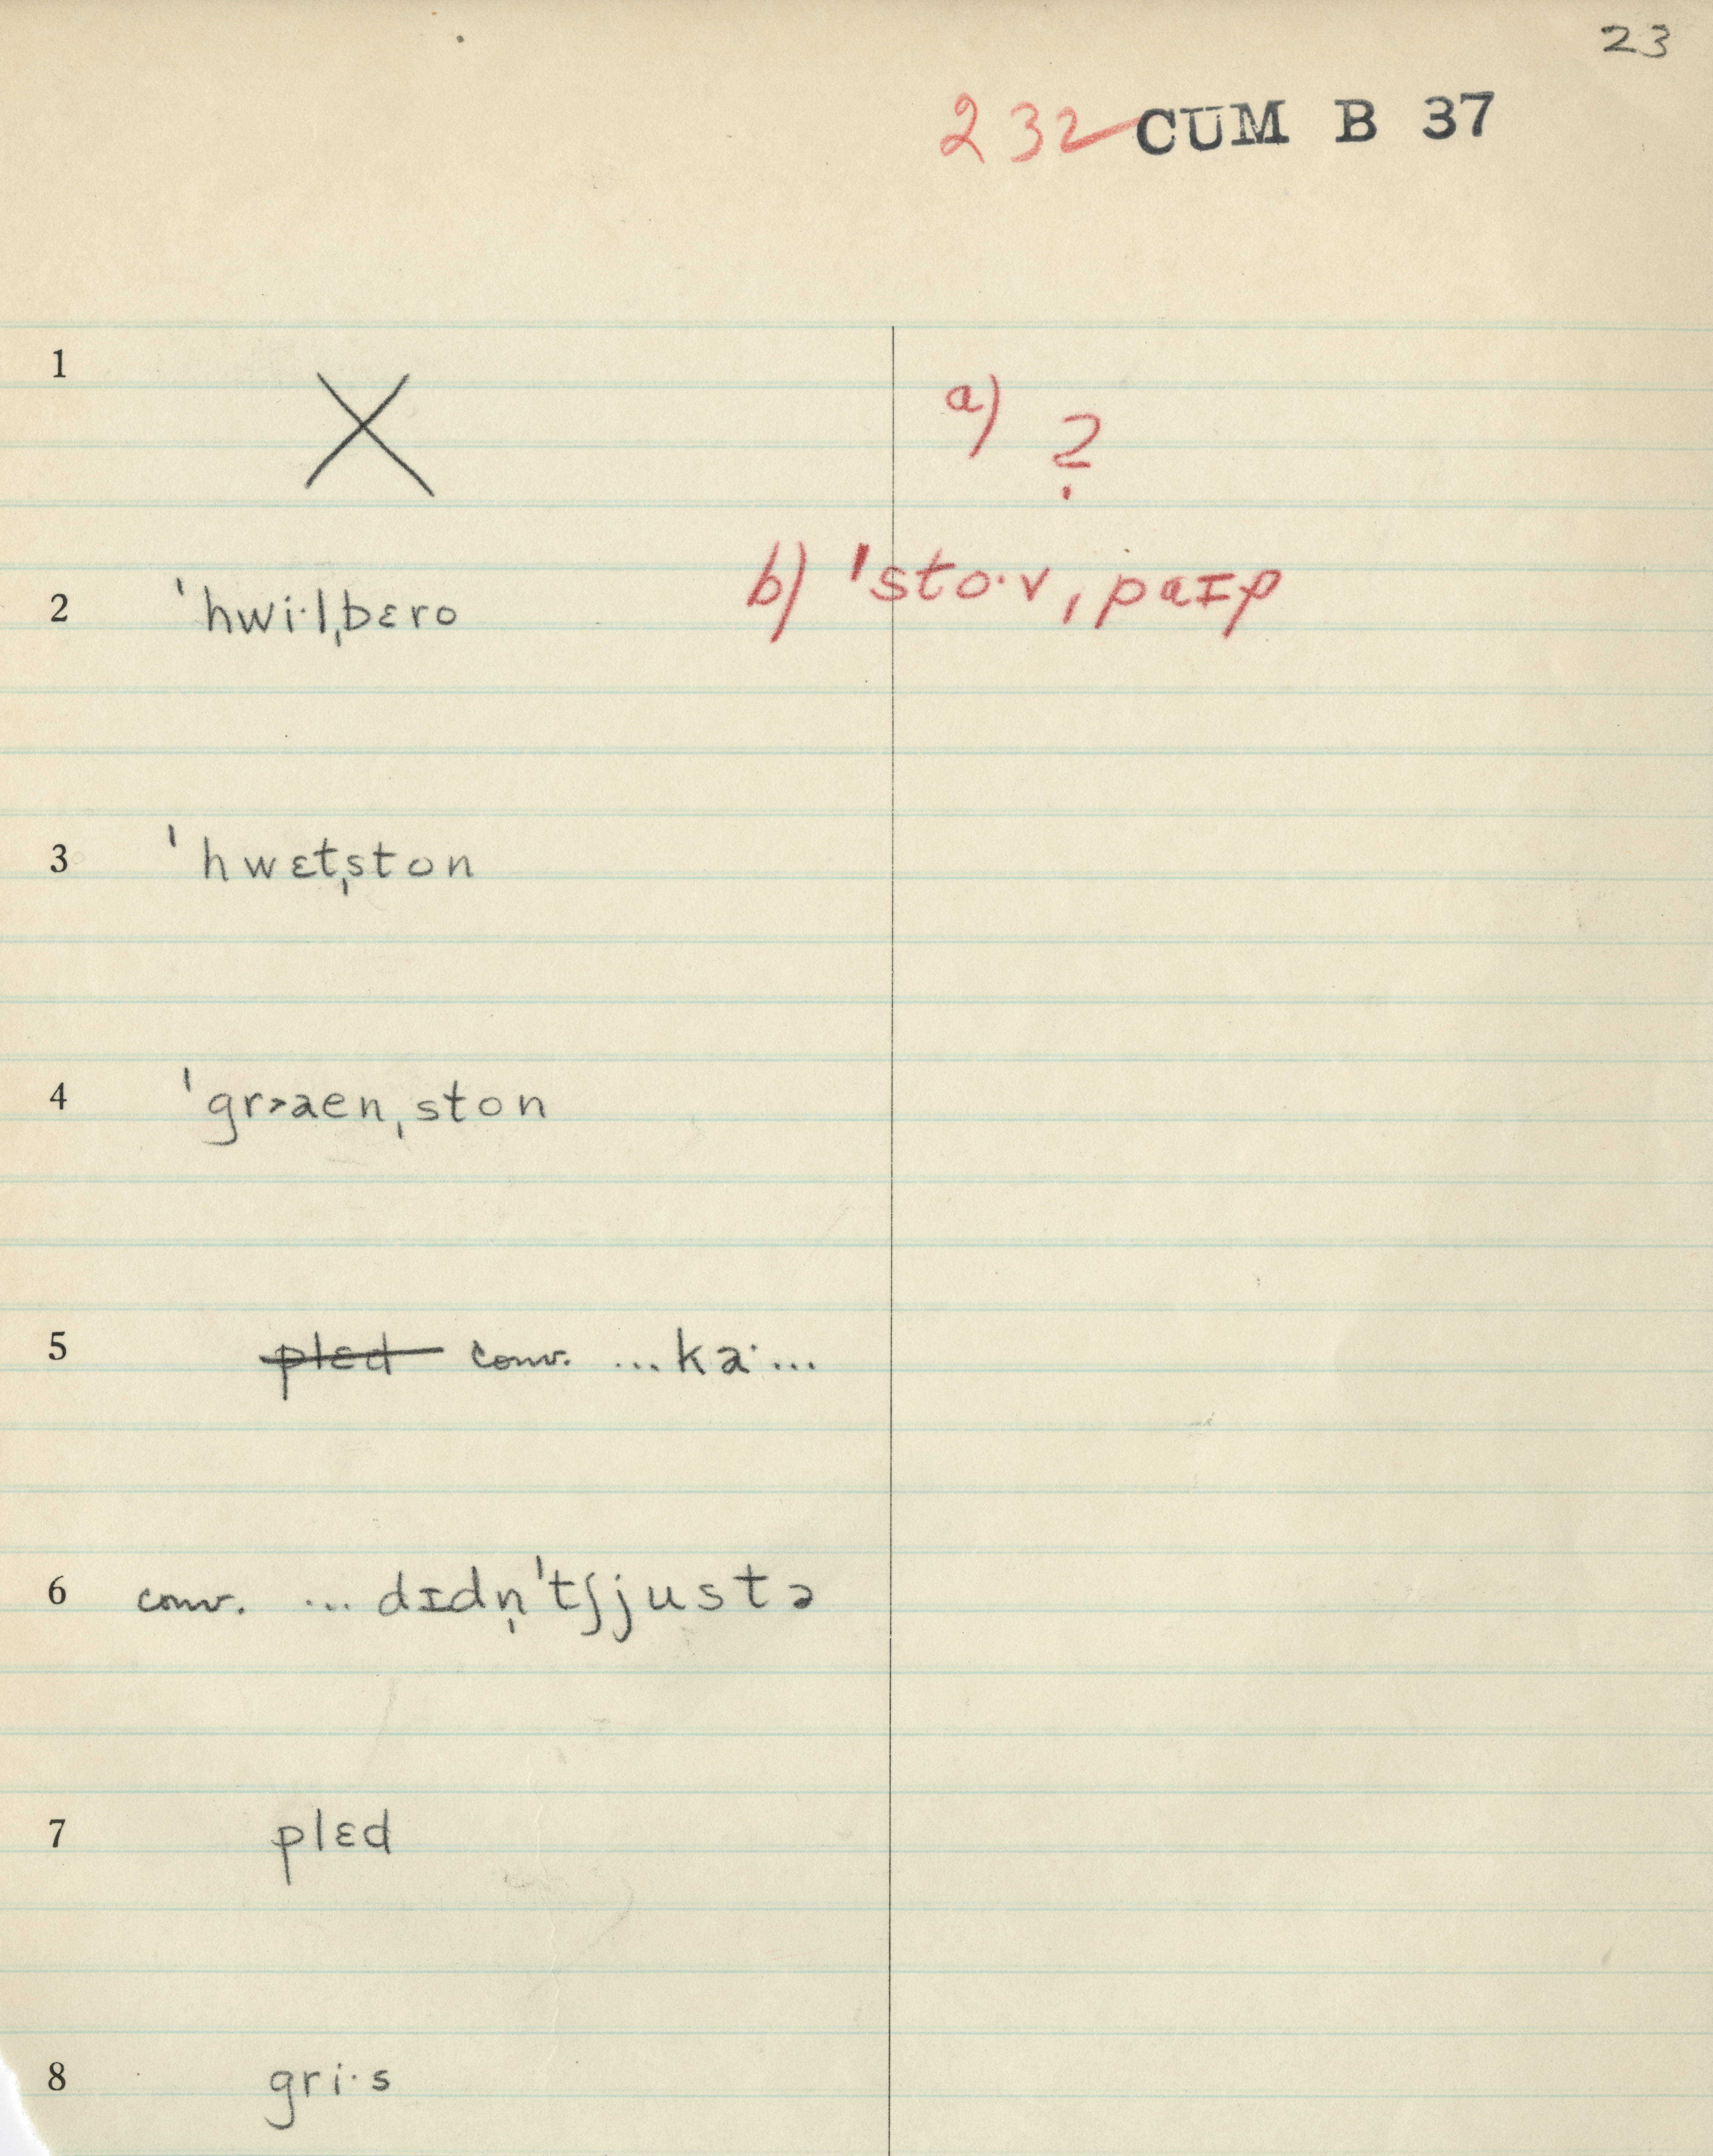 23
232 CUM B 37
1 X a) ?
2 ˈhwi·lˌbɛro b) ˈsto·vˌpaɪp
3 ˈhwɛtˌston
4 ˈgr˃aenˌston
5 plɛd conv. ...ka·...
6 conv. ... dɪdn̩ˈtʃjustə
7 plɛd
8 gri·s